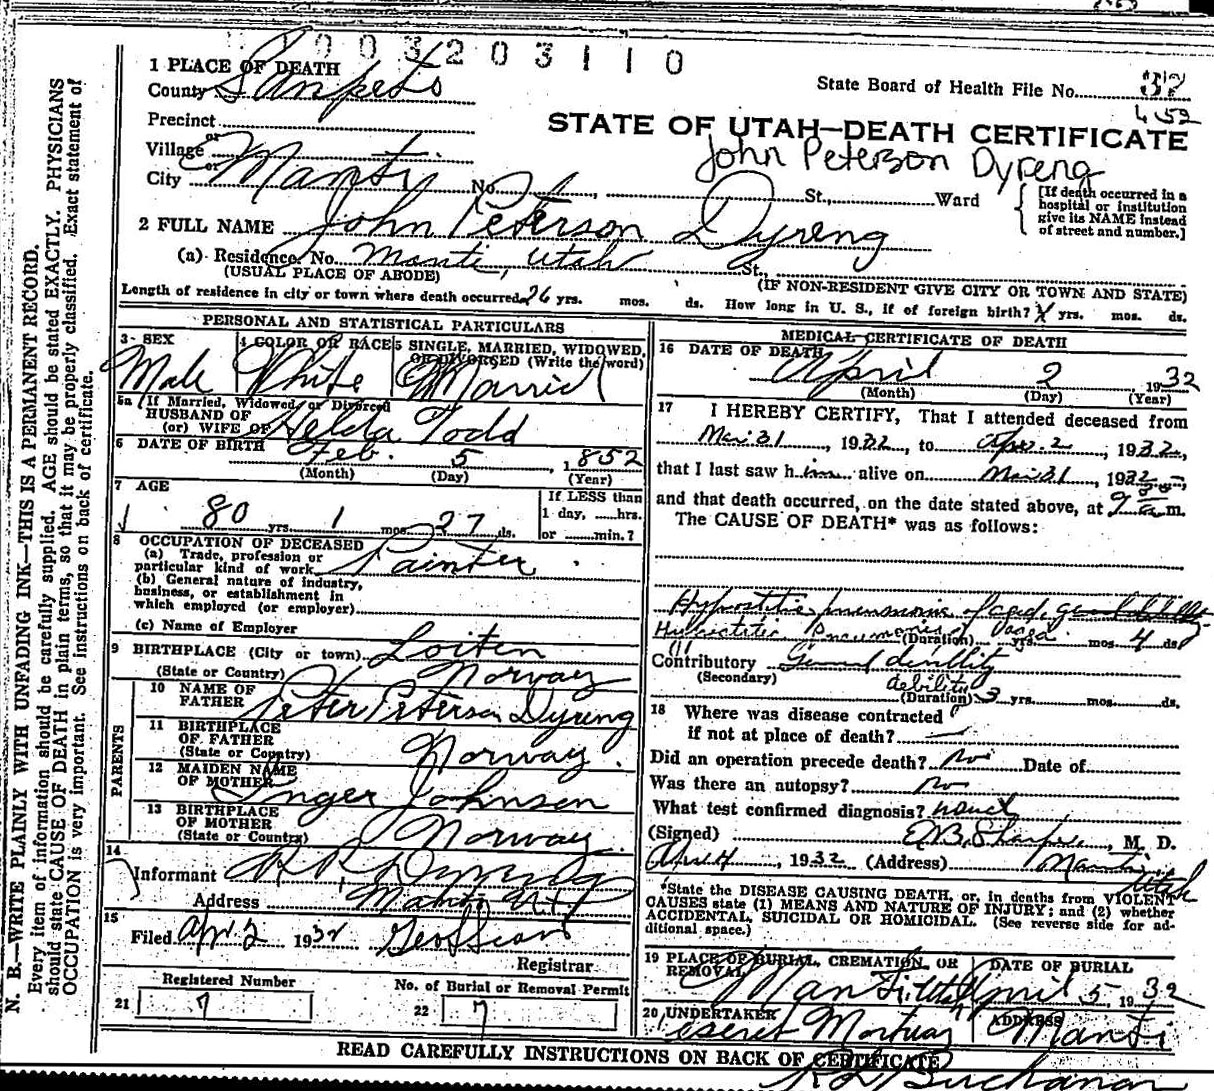 003203110
1 PLACE OF DEATH
County Sanpete
State Board of Health File No. 32
452
Precinct
STATE OF UTAH—DEATH CERTIFICATE
or
Village
John Peterson Dyreng
or
City Manti No. St., Ward
[If death occurred in a hospital or institution give its NAME instead of street and number.]
2 FULL NAME John Peterson Dyreng
(a) Residence. No. Manti, Utah St.,
(USUAL PLACE OF ABODE) (IF NON-RESIDENT GIVE CITY OR TOWN AND STATE)
Length of residence in city or town where death occurred 26 yrs. mos. ds. How long in U. S., if of foreign birth? X yrs. mos. ds.
PERSONAL AND STATISTICAL PARTICULARS
3 SEX
Male
4 COLOR OR RACE
White
5 SINGLE, MARRIED, WIDOWED, OR DIVORCED (Write the word)
Married
5a If Married, Widowed, or Divorced
HUSBAND OF
(or) WIFE OF Helda Todd
6 DATE OF BIRTH Feb. 5, 1852
(Month) (Day) (Year)
7 AGE
80 yrs. 1 mos. 27 ds.
If LESS than
1 day, hrs.
or min.?
8 OCCUPATION OF DECEASED
(a) Trade, profession or
particular kind of work Painter
(b) General nature of industry,
business, or establishment in
which employed (or employer)
(c) Name of Employer
9 BIRTHPLACE (City or town) Loiten
(State or Country) Norway
PARENTS
10 NAME OF
FATHER Peter Peterson Dyreng
11 BIRTHPLACE
OF FATHER
(State or Country) Norway.
12 MAIDEN NAME
OF MOTHER Inger Johnsen
13 BIRTHPLACE
OF MOTHER
(State or Country) Norway.
14
Informant R. P. Dyreng
Address Manti Ut.
15
Filed Apr 2 1932
Registrar
Registered Number
21 7
No. of Burial or Removal Permit
22 7
MEDICAL CERTIFICATE OF DEATH
16 DATE OF DEATH
April 2, 1932
(Month) (Day) (Year)
17 I HEREBY CERTIFY, That I attended deceased from
Mar 31, 1932, to Apr. 2, 1932,
that I last saw him alive on Mar 31, 1932,
and that death occurred, on the date stated above, at 9 a m.
The CAUSE OF DEATH* was as follows:
pneumonia of aged,
Pneumonia
(Duration) yrs. mos. 4 ds.
Contributory General devility
(Secondary) debility
(Duration) 3 yrs. mos. ds.
18 Where was disease contracted
if not at place of death?
Did an operation precede death? no Date of
Was there an autopsy? no
What test confirmed diagnosis?
(Signed) M. D.
April 4, 1932 (Address) Manti Utah
*State the DISEASE CAUSING DEATH, or, in deaths from VIOLENT
CAUSES state (1) MEANS AND NATURE OF INJURY; and (2) whether
ACCIDENTAL, SUICIDAL OR HOMICIDAL. (See reverse side for additional space.)
19 PLACE OF BURIAL, CREMATION, OR REMOVAL
Manti Utah
DATE OF BURIAL
April 5, 1932
20 UNDERTAKER
Deseret Mortuary
ADDRESS
Manti
READ CAREFULLY INSTRUCTIONS ON BACK OF CERTIFICATE
N. B.—WRITE PLAINLY WITH UNFADING INK—THIS IS A PERMANENT RECORD.
Every item of information should be carefully supplied. AGE should be stated EXACTLY. PHYSICIANS
should state CAUSE OF DEATH in plain terms, so that it may be properly classified. Exact statement of
OCCUPATION is very important. See instructions on back of certificate.